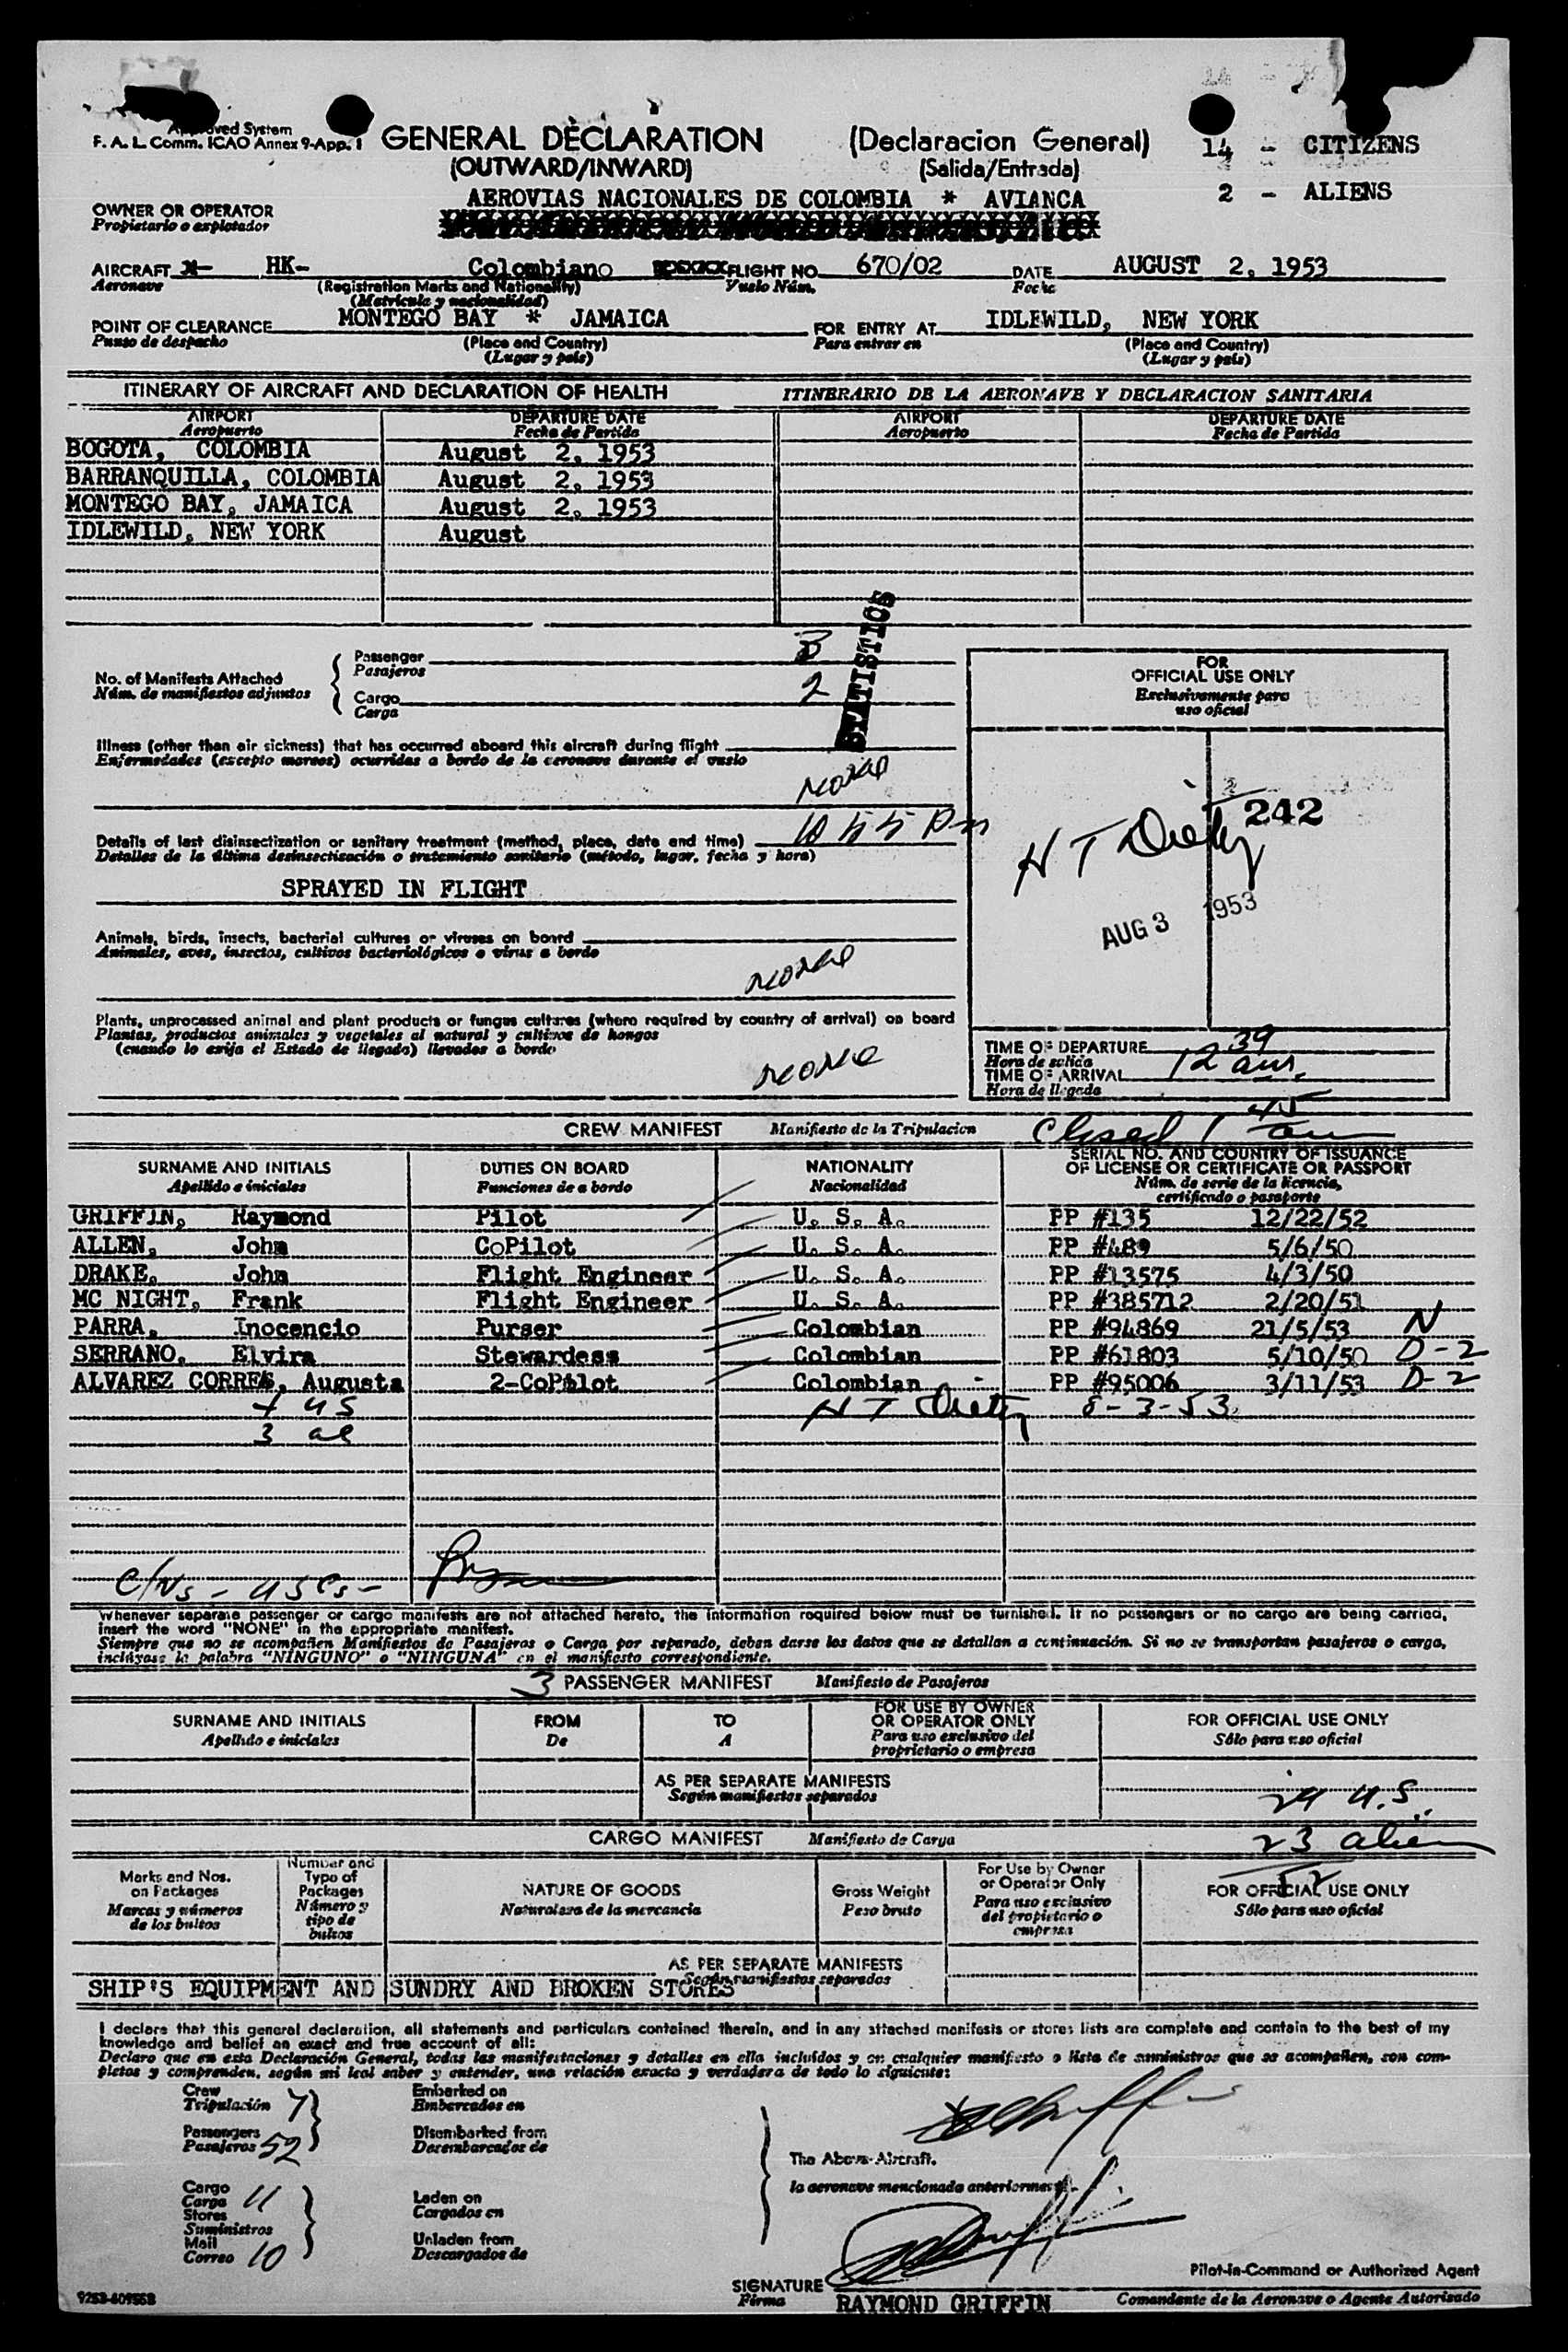 Approved System
F. A. L. Comm. ICAO Annex 9-App. 1
GENERAL DECLARATION (Declaracion General)
(OUTWARD/INWARD) (Salida/Entrada)
14 - CITIZENS
2 - ALIENS
AEROVIAS NACIONALES DE COLOMBIA * AVIANCA
OWNER OR OPERATOR
Propietario o explotador
AIRCRAFT HK- Colombiano FLIGHT NO. 670/02 DATE AUGUST 2, 1953
Aeronave (Registration Marks and Nationality) Vuelo Núm. Fecha
(Matricula y nacionalidad)
POINT OF CLEARANCE MONTEGO BAY * JAMAICA FOR ENTRY AT IDLEWILD, NEW YORK
Punto de despacho (Place and Country) Para entrar en (Place and Country)
(Lugar y país) (Lugar y país)
ITINERARY OF AIRCRAFT AND DECLARATION OF HEALTH ITINERARIO DE LA AERONAVE Y DECLARACION SANITARIA
AIRPORT DEPARTURE DATE AIRPORT DEPARTURE DATE
Aeropuerto Fecha de Partida Aeropuerto Fecha de Partida
BOGOTA, COLOMBIA August 2, 1953
BARRANQUILLA, COLOMBIA August 2, 1953
MONTEGO BAY, JAMAICA August 2, 1953
IDLEWILD, NEW YORK August
STATISTICS
No. of Manifests Attached
Núm. de manifiestos adjuntos
Passenger
Pasajeros
Cargo 2
Carga
Illness (other than air sickness) that has occurred aboard this aircraft during flight
Enfermedades (excepto mareos) ocurridas a bordo de la aeronave durante el vuelo
None
Details of last disinsectization or sanitary treatment (method, place, date and time) 1055 Pm
Detalles de la última desinsectización o tratamiento sanitario (método, lugar, fecha y hora)
SPRAYED IN FLIGHT
Animals, birds, insects, bacterial cultures or viruses on board
Animales, aves, insectos, cultivos bacteriológicos o virus a bordo
None
Plants, unprocessed animal and plant products or fungus cultures (where required by country of arrival) on board
Plantas, productos animales y vegetales al natural y cultivos de hongos
(cuando lo exija el Estado de llegada) llevados a bordo
None
FOR
OFFICIAL USE ONLY
Exclusivamente para
uso oficial
242
H T
AUG 3 1953
TIME OF DEPARTURE
Hora de salida
TIME OF ARRIVAL 12 39 am.
Hora de llegada
Closed 1 45 am
CREW MANIFEST Manifiesto de la Tripulacion
SURNAME AND INITIALS DUTIES ON BOARD NATIONALITY SERIAL NO. AND COUNTRY OF ISSUANCE
OF LICENSE OR CERTIFICATE OR PASSPORT
Apellido e iniciales Funciones de a bordo Nacionalidad Núm. de serie de la licencia,
certificado o pasaporte
GRIFFIN, Raymond Pilot U. S. A. PP #135 12/22/52
ALLEN, John CoPilot U. S. A. PP #489 5/6/50
DRAKE, John Flight Engineer U. S. A. PP #13575 4/3/50
MC NIGHT, Frank Flight Engineer U. S. A. PP #385712 2/20/51
PARRA, Inocencio Purser Colombian PP #94869 21/5/53 N
SERRANO, Elvira Stewardess Colombian PP #61803 5/10/50 D-2
ALVAREZ CORREA, Augusta 2-CoPilot Colombian PP #95006 3/11/53 D-2
US H T 8-3-53
3 al
Whenever separate passenger or cargo manifests are not attached hereto, the information required below must be furnished. If no passengers or no cargo are being carried,
insert the word "NONE" in the appropriate manifest.
Siempre que no se acompañen Manifiestos de Pasajeros o Carga por separado, deben darse los datos que se detallan a continuación. Si no se transportan pasajeros o carga,
inclúyase la palabra "NINGUNO" o "NINGUNA" en el manifiesto correspondiente.
3 PASSENGER MANIFEST Manifiesto de Pasajeros
SURNAME AND INITIALS FROM TO FOR USE BY OWNER
OR OPERATOR ONLY FOR OFFICIAL USE ONLY
Apellido e iniciales De A Para uso exclusivo del
propietario o empresa Sólo para uso oficial
AS PER SEPARATE MANIFESTS
Según manifiestos separados
29 U.S.
23 alien
52
CARGO MANIFEST Manifiesto de Carga
Marks and Nos.
on Packages
Marcas y números
de los bultos
Number and
Type of
Packages
Número y
tipo de
bultos
NATURE OF GOODS
Naturaleza de la mercancia
Gross Weight
Peso bruto
For Use by Owner
or Operator Only
Para uso exclusivo
del propietario o
empresa
FOR OFFICIAL USE ONLY
Sólo para uso oficial
AS PER SEPARATE MANIFESTS
Según manifiestos separados
SHIP'S EQUIPMENT AND SUNDRY AND BROKEN STORES
I declare that this general declaration, all statements and particulars contained therein, and in any attached manifests or stores lists are complete and contain to the best of my
knowledge and belief an exact and true account of all:
Declaro que en esta Declaración General, todas las manifestaciones y detalles en ella incluidos y en cualquier manifiesto o lista de suministros que se acompañen, son com-
pletos y comprenden, según mi leal saber y entender, una relación exacta y verdadera de todo lo siguiente:
Crew Embarked on
Tripulación 7 Embarcados en
Passengers Disembarked from
Pasajeros 52 Desembarcados de
The Above-Aircraft.
la aeronave mencionada anteriormente.
Cargo
Carga 11 Laden on
Stores Cargados en
Suministros
Mail Unladen from
Correo 10 Descargados de
Pilot-in-Command or Authorized Agent
SIGNATURE
Firma RAYMOND GRIFFIN Comandante de la Aeronave o Agente Autorizado